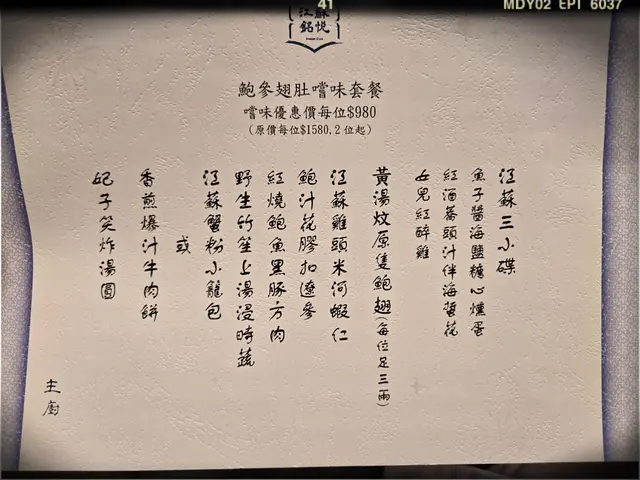 41
MDY02 EPT 6037
江蘇
銘悦
鮑參翅肚嚐味套餐
嚐味優惠價每位$980
(原價每位$1580,2位起)
江蘇三小碟
魚子醬海鹽糖心燻蛋
紅酒蕃頭汁伴海蜇花
女兒紅醉雞
黃湯炆原隻鮑翅(每位足三兩)
江蘇雞頭米河蝦仁
鮑汁花膠扣遼參
紅燒鮑魚黑豚方肉
野生竹笙上湯浸時蔬
江蘇蟹粉小籠包
或
香煎爆汁牛肉餅
妃子笑炸湯圓
主廚